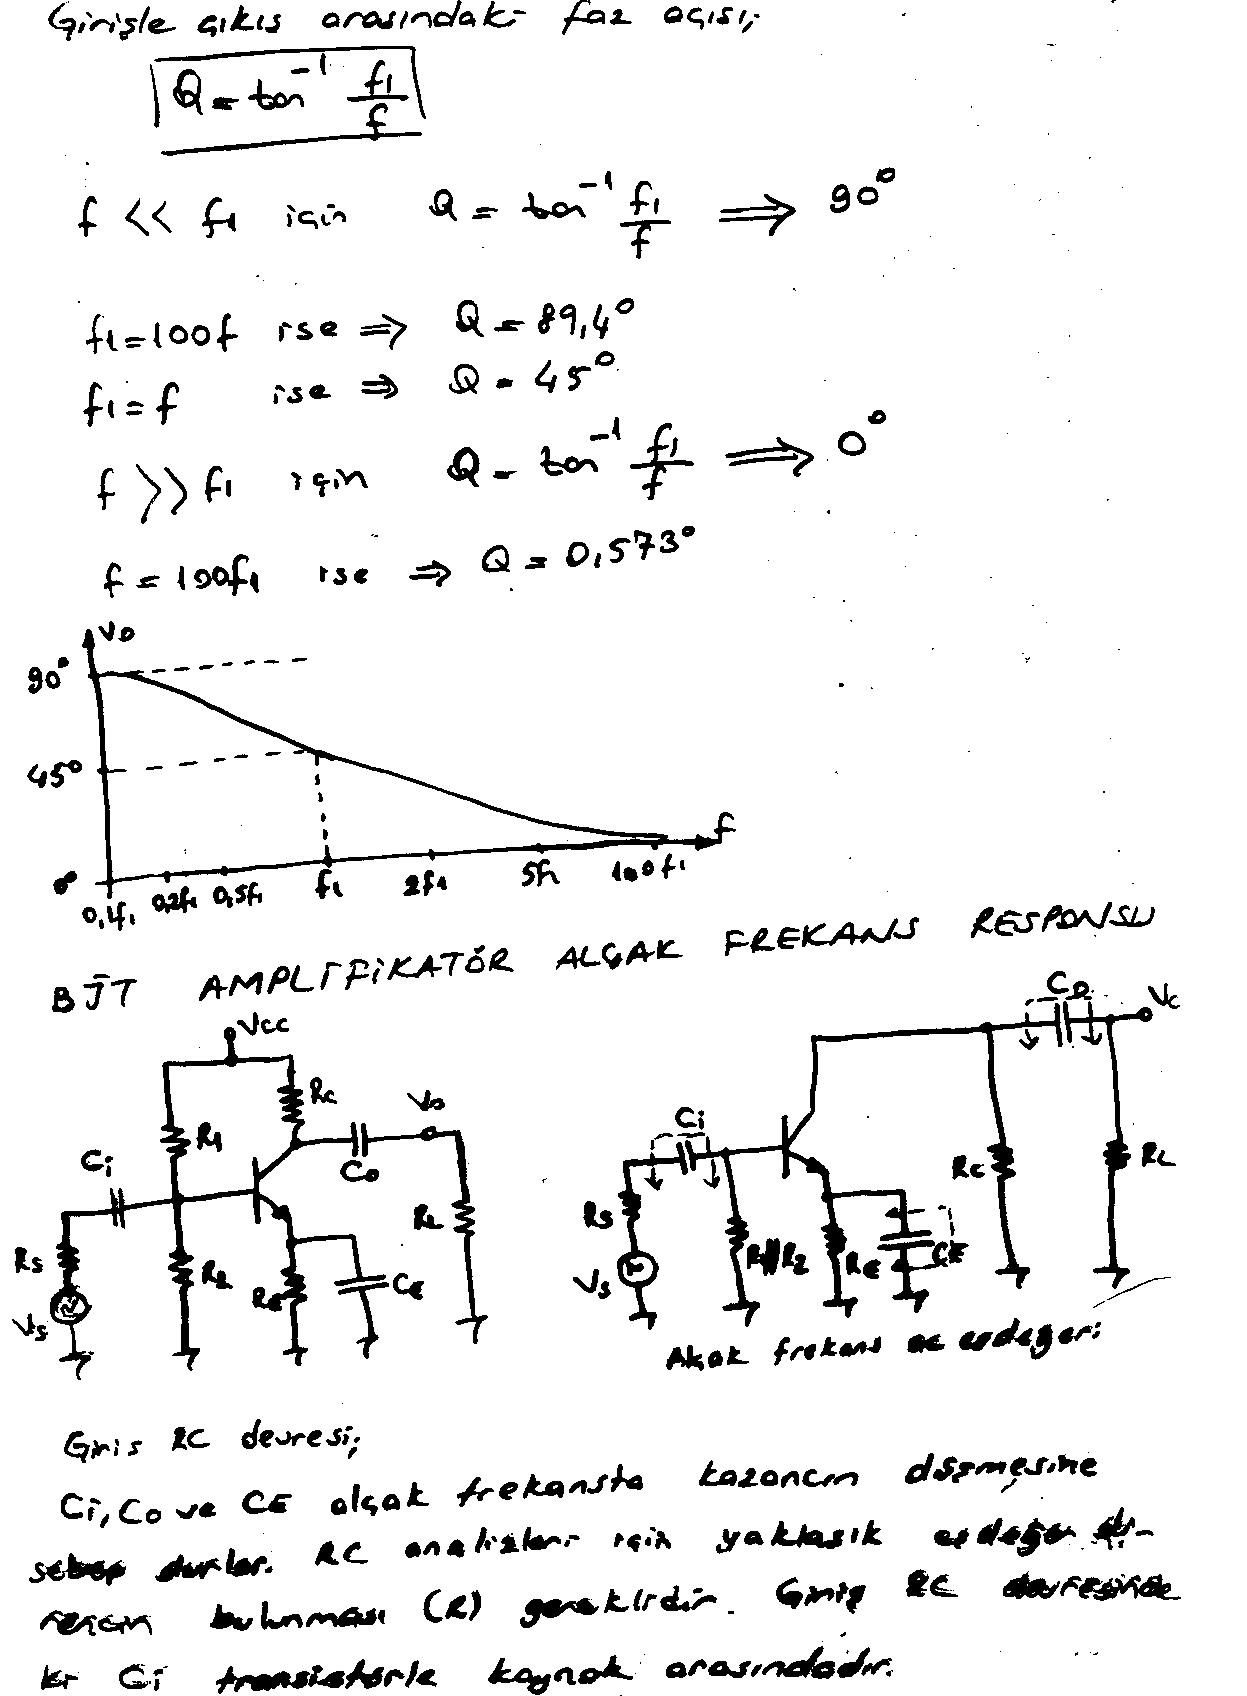 Girişle çıkış arasındaki faz açısı;
Q = tan⁻¹ f1/f
f << f1 için Q = tan⁻¹ f1/f ⟹ 90°
f1=100f ise ⇒ Q = 89,4°
f1=f ise ⇒ Q = 45°
f >> f1 için Q = tan⁻¹ f1/f ⟹ 0°
f = 100f1 ise ⇒ Q = 0,573°
Vo
90°
45°
0°
f
0,1f1 0,2f1 0,5f1 f1 2f1 5f1 100f1
BJT AMPLİFİKATÖR ALÇAK FREKANS RESPONSU
Vcc
R1
Rc
Vo
Co
Ci
Rs
Vs
R2
RE
CE
RL
Co
Vc
Ci
Rs
Vs
R1//R2
RE
CE
Rc
RL
Alçak frekans ac eşdeğeri
Giriş RC devresi;
Ci, Co ve CE alçak frekansta kazancın düşmesine
sebep durlar. RC analizleri için yaklaşık eşdeğer di-
rencin bulunması (R) gereklidir. Giriş RC devresinde
ki Ci transistörle kaynak arasındadır.